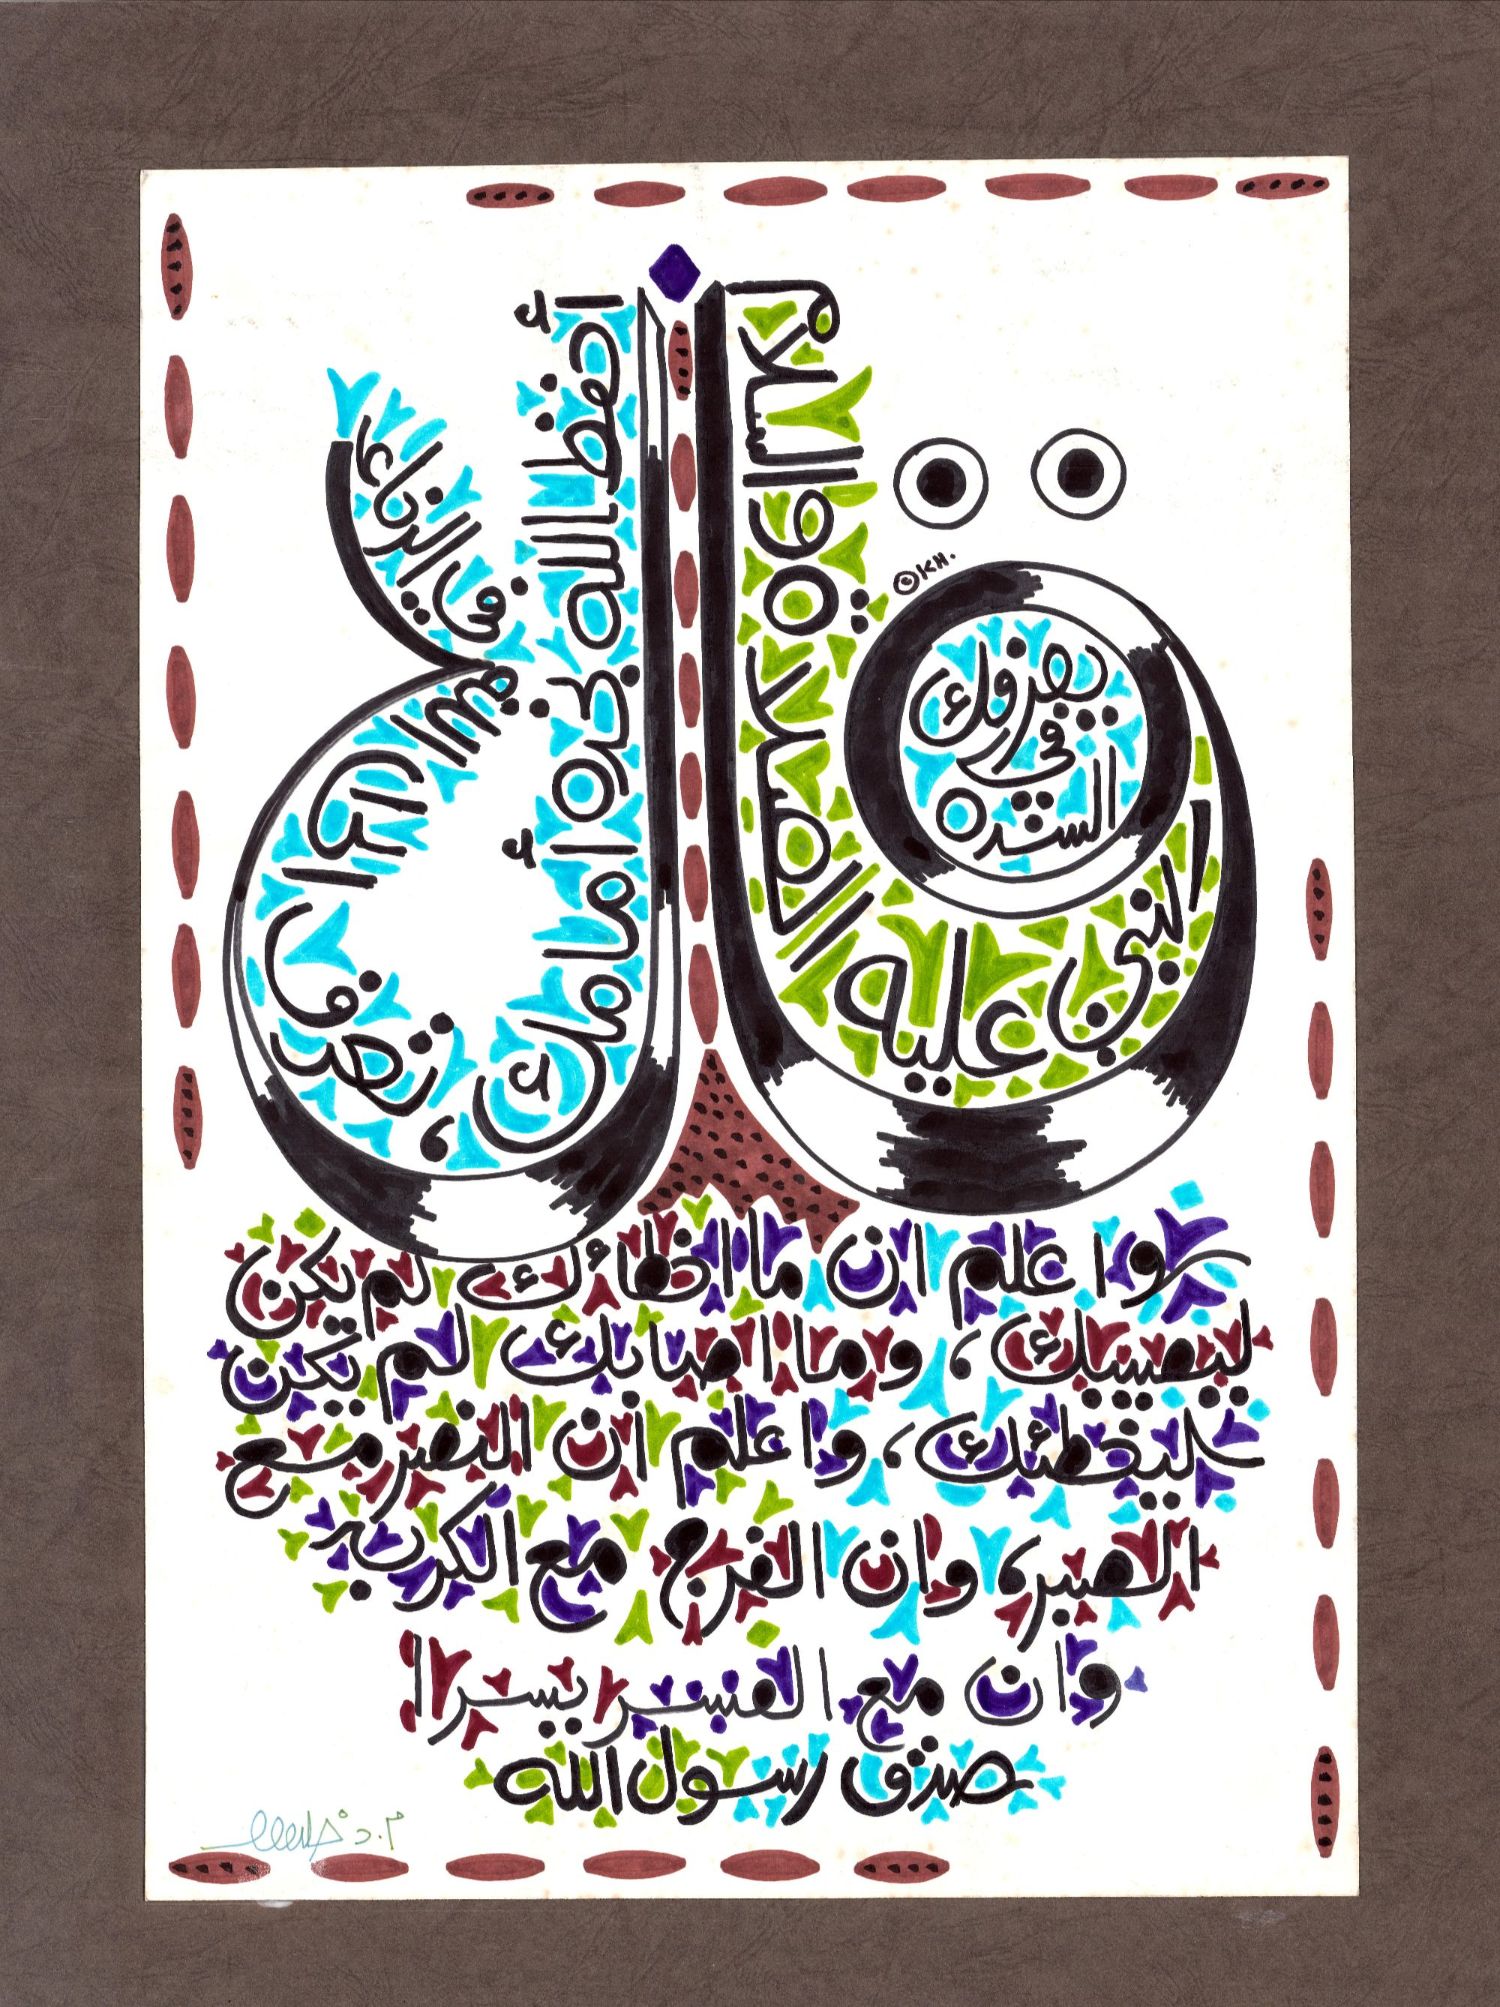 قال
النبي عليه الصلاة والسلام
أحفظ الله تجده أمامك، تعرف إلى الله في الرخاء
يعرفك
في
الشدة
© KH.
واعلم ان ما اخطائك لم يكن
ليصيبك، وما اصابك لم يكن
ليخطئك، واعلم ان النصر مع
الصبر، وان الفرج مع الكرب
وان مع العسر يسرا
صدق رسول الله